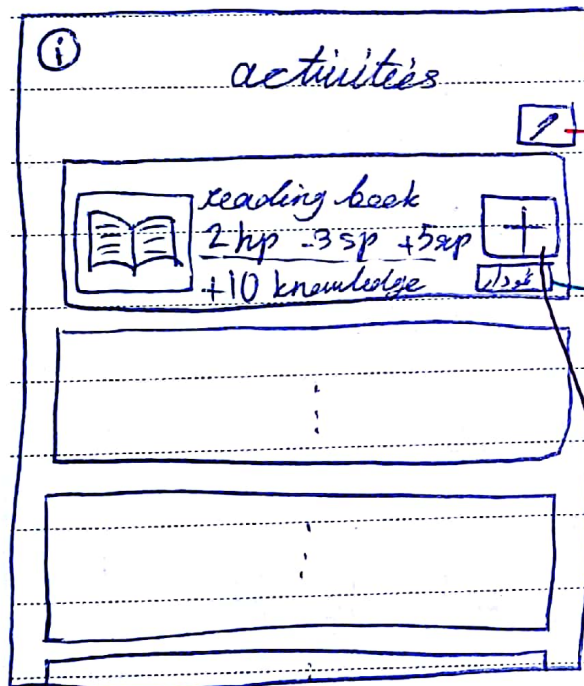 i
activities
reading book
2 hp -3 sp +5 xp
+10 knowledge
نمودار